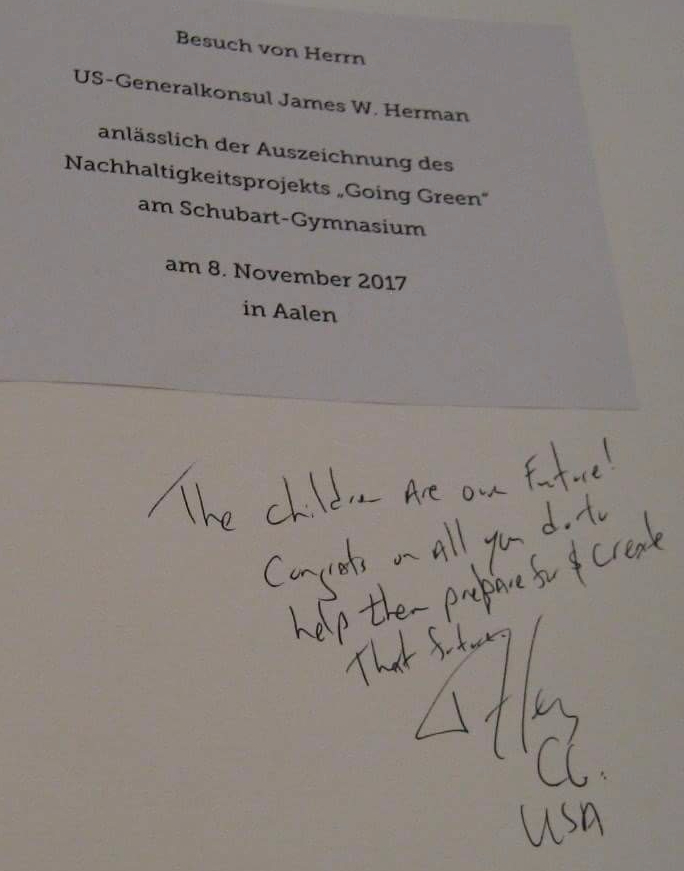 Besuch von Herrn
US-Generalkonsul James W. Herman
anlässlich der Auszeichnung des
Nachhaltigkeitsprojekts „Going Green“
am Schubart-Gymnasium
am 8. November 2017
in Aalen
The children Are our Future!
Congrats on All you do to
help them prepare for & create
That future.
CG.
USA